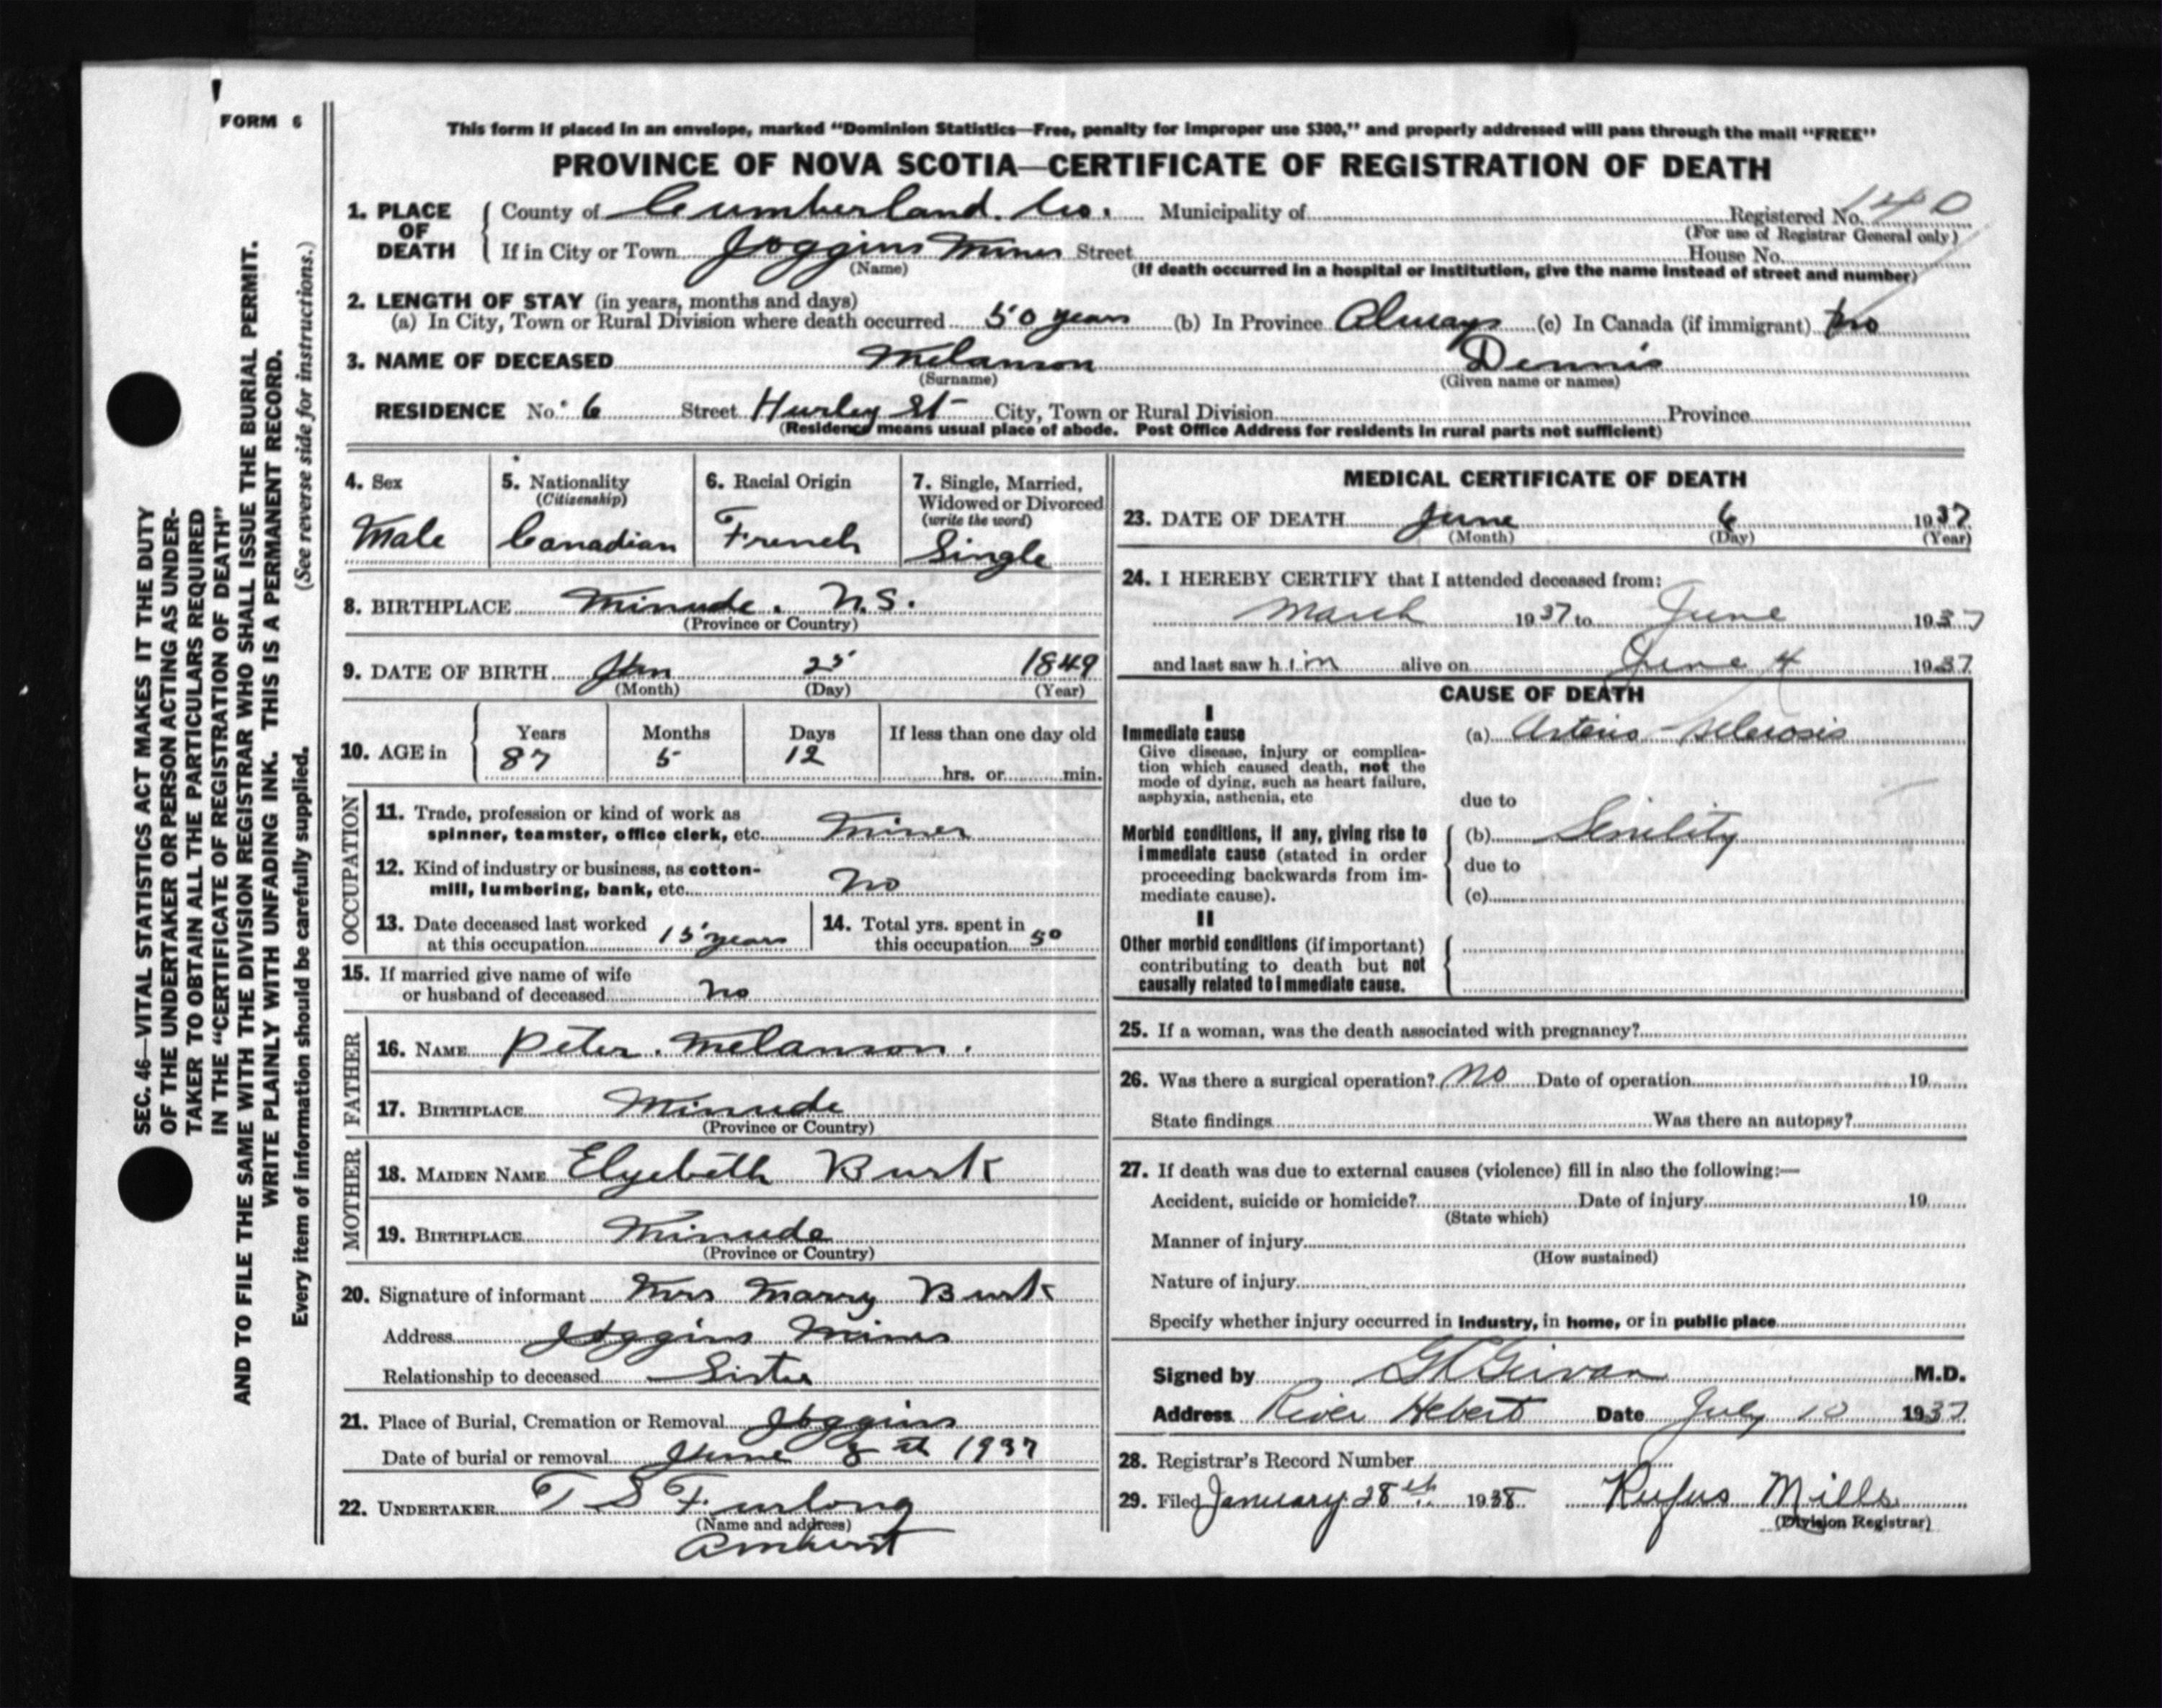 FORM 6
This form if placed in an envelope, marked "Dominion Statistics—Free, penalty for improper use $300," and properly addressed will pass through the mail "FREE"
PROVINCE OF NOVA SCOTIA—CERTIFICATE OF REGISTRATION OF DEATH
1. PLACE OF DEATH County of Cumberland. Co. Municipality of Registered No. 140
(For use of Registrar General only)
If in City or Town Joggins Mines Street House No.
(Name) (If death occurred in a hospital or institution, give the name instead of street and number)
2. LENGTH OF STAY (in years, months and days)
(a) In City, Town or Rural Division where death occurred 50 years (b) In Province Always (c) In Canada (if immigrant) no
3. NAME OF DECEASED Melanson Dennis
(Surname) (Given name or names)
RESIDENCE No. 6 Street Hurley St City, Town or Rural Division Province
(Residence means usual place of abode. Post Office Address for residents in rural parts not sufficient)
4. Sex 5. Nationality (Citizenship) 6. Racial Origin 7. Single, Married, Widowed or Divorced (write the word)
Male Canadian French Single
8. BIRTHPLACE Minude. N.S.
(Province or Country)
9. DATE OF BIRTH Jan 25 1849
(Month) (Day) (Year)
10. AGE in Years Months Days If less than one day old
87 5 12 hrs. or min.
OCCUPATION
11. Trade, profession or kind of work as
spinner, teamster, office clerk, etc. Miner
12. Kind of industry or business, as cotton-
mill, lumbering, bank, etc. No
13. Date deceased last worked
at this occupation 15 years
14. Total yrs. spent in
this occupation 50
15. If married give name of wife
or husband of deceased No
FATHER
16. NAME Peter. Melanson.
17. BIRTHPLACE Minude
(Province or Country)
MOTHER
18. MAIDEN NAME Elyebeth Burk
19. BIRTHPLACE Minude
(Province or Country)
20. Signature of informant Mrs Marry Burk
Address Joggins Mines
Relationship to deceased Sister
21. Place of Burial, Cremation or Removal Joggins
Date of burial or removal June 8th 1937
22. UNDERTAKER T S Furlong
(Name and address)
Amherst
MEDICAL CERTIFICATE OF DEATH
23. DATE OF DEATH June 6 1937
(Month) (Day) (Year)
24. I HEREBY CERTIFY that I attended deceased from:
March 1937 to June 1937
and last saw him alive on June 4 1937
CAUSE OF DEATH
I
Immediate cause
Give disease, injury or complica-
tion which caused death, not the
mode of dying, such as heart failure,
asphyxia, asthenia, etc
(a) Arterio-sclerosis
due to
Morbid conditions, if any, giving rise to
immediate cause (stated in order
proceeding backwards from im-
mediate cause).
(b) Senility
due to
(c)
II
Other morbid conditions (if important)
contributing to death but not
causally related to immediate cause.
25. If a woman, was the death associated with pregnancy?
26. Was there a surgical operation? No Date of operation 19
State findings Was there an autopsy?
27. If death was due to external causes (violence) fill in also the following:—
Accident, suicide or homicide? Date of injury 19
(State which)
Manner of injury
(How sustained)
Nature of injury
Specify whether injury occurred in industry, in home, or in public place
Signed by M.D.
Address River Hebert Date July 10 1937
28. Registrar's Record Number
29. Filed January 28th 1938 Rufus Mills
(Division Registrar)
SEC. 46—VITAL STATISTICS ACT MAKES IT THE DUTY
OF THE UNDERTAKER OR PERSON ACTING AS UNDER-
TAKER TO OBTAIN ALL THE PARTICULARS REQUIRED
IN THE "CERTIFICATE OF REGISTRATION OF DEATH"
AND TO FILE THE SAME WITH THE DIVISION REGISTRAR WHO SHALL ISSUE THE BURIAL PERMIT.
WRITE PLAINLY WITH UNFADING INK. THIS IS A PERMANENT RECORD.
Every item of information should be carefully supplied. (See reverse side for instructions.)